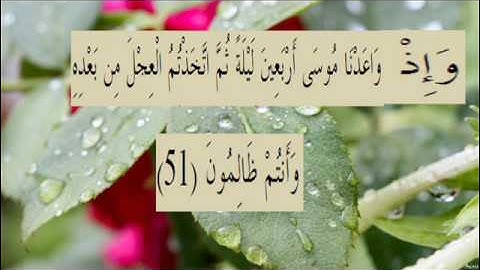 وَإِذْ وَاعَدْنَا مُوسَى أَرْبَعِينَ لَيْلَةً ثُمَّ اتَّخَذْتُمُ الْعِجْلَ مِن بَعْدِهِ
وَأَنتُمْ ظَالِمُونَ (51)